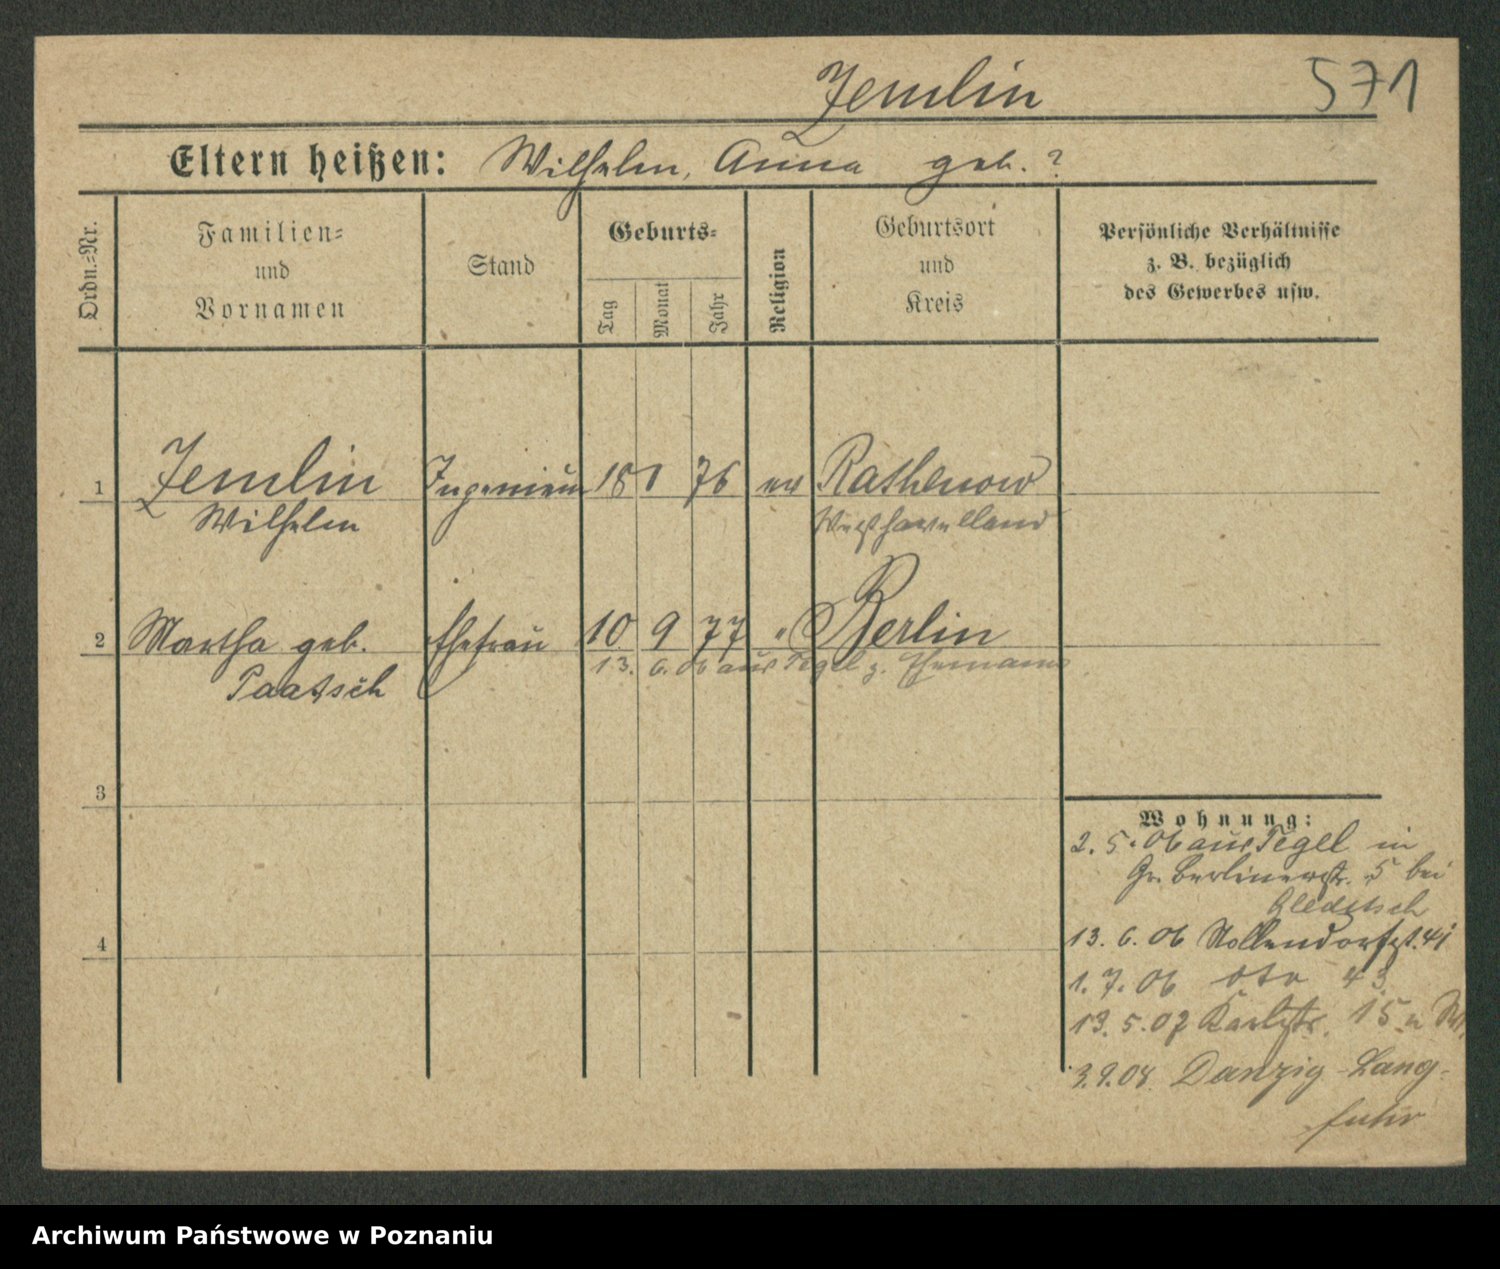 Zemlin 571
Eltern heißen: Wilhelm, Anna geb. ?
Ordn.-Nr.
Familien-
und
Vornamen
Stand
Geburts-
Tag
Monat
Jahr
Religion
Geburtsort
und
Kreis
Persönliche Verhältnisse
z. B. bezüglich
des Gewerbes usw.
1 Zemlin Ingenieur 18 1 76 ev Rathenow
Wilhelm Westhavelland
2 Martha geb. Ehefrau 10 9 77 " Berlin
13. 6. 06 aus Tegel z. Ehemann
Paatsch
3
4
Wohnung:
2. 5. 06 aus Tegel in
Gr. Berlinerstr. 5 bei
13. 6. 06 Nollendorfst. 41
1. 7. 06 dto 43
13. 5. 07 Karlstr. 15
3.9.08. Danzig-Lang-
fuhr
Archiwum Państwowe w Poznaniu